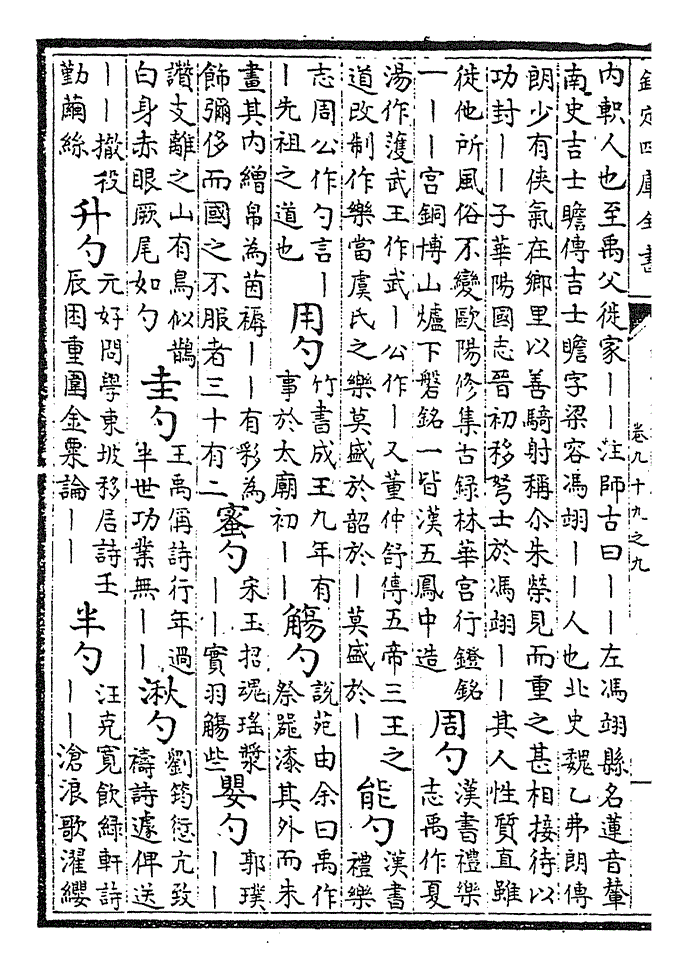 欽定四庫全書
卷九十九之九
内軹人也至禹父徙家――注師古曰――左馮翊縣名蓮音輦
南史吉士瞻傳吉士瞻字梁容馮翊――人也北史魏乙弗朗傳
朗少有俠氣在鄉里以善騎射稱尒朱榮見而重之甚相接待以
功封――子華陽國志晉初移弩士於馮翊――其人性質直雖
徙他所風俗不變歐陽修集古録林華宫行鐙銘
一――宫銅博山爐下磐銘一皆漢五鳳中造
周勺
漢書禮樂
志禹作夏
湯作濩武王作武―公作―又董仲舒傳五帝三王之
道改制作樂當虞氏之樂莫盛於韶於―莫盛於―
能勺
漢書
禮樂
志周公作勺言―
―先祖之道也
用勺
竹書成王九年有
事於太廟初――
觴勺
說苑由余曰禹作
祭器漆其外而朱
畫其内繒帛為茵褥――有彩為
飾彌侈而國之不服者三十有二
蜜勺
宋玉招魂瑤漿
――實羽觴些
嬰勺
郭璞
――
讚支離之山有鳥似鵲
白身赤眼厥尾如勺
圭勺
王禹偁詩行年過
半世功業無――
湫勺
劉筠愆亢致
禱詩遽俾送
――撤役
勤繭絲
升勺
元好問學東坡移居詩壬
辰困重圍金粟論――
半勺
汪克寬飲緑軒詩
――滄浪歌濯纓